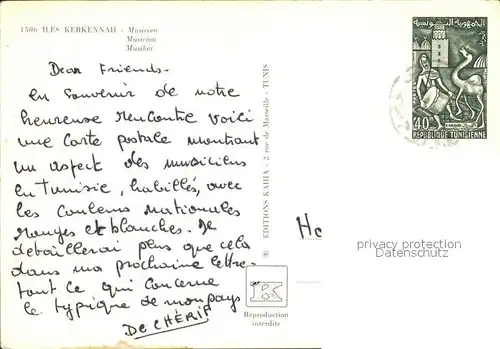 1506 ILES KERKENNAH - Musicien
Musician
Musiker
Dear Friends-
en souvenir de notre
heureuse rencontre voici
une carte postale montrant
un aspect des musiciens
en Tunisie, habillés, avec
les couleurs nationales
rouges et blanches. Je
detaillerai plus que cela
dans ma prochaine lettre-
tout ce qui concerne
le typique de mon pays
De CHÉRIF
© EDITIONS KAHIA - 2, rue de Marseille - TUNIS
K
Reproduction
interdite
40
REPUBLIQUE TUNISIENNE
He
privacy protection
Datenschutz